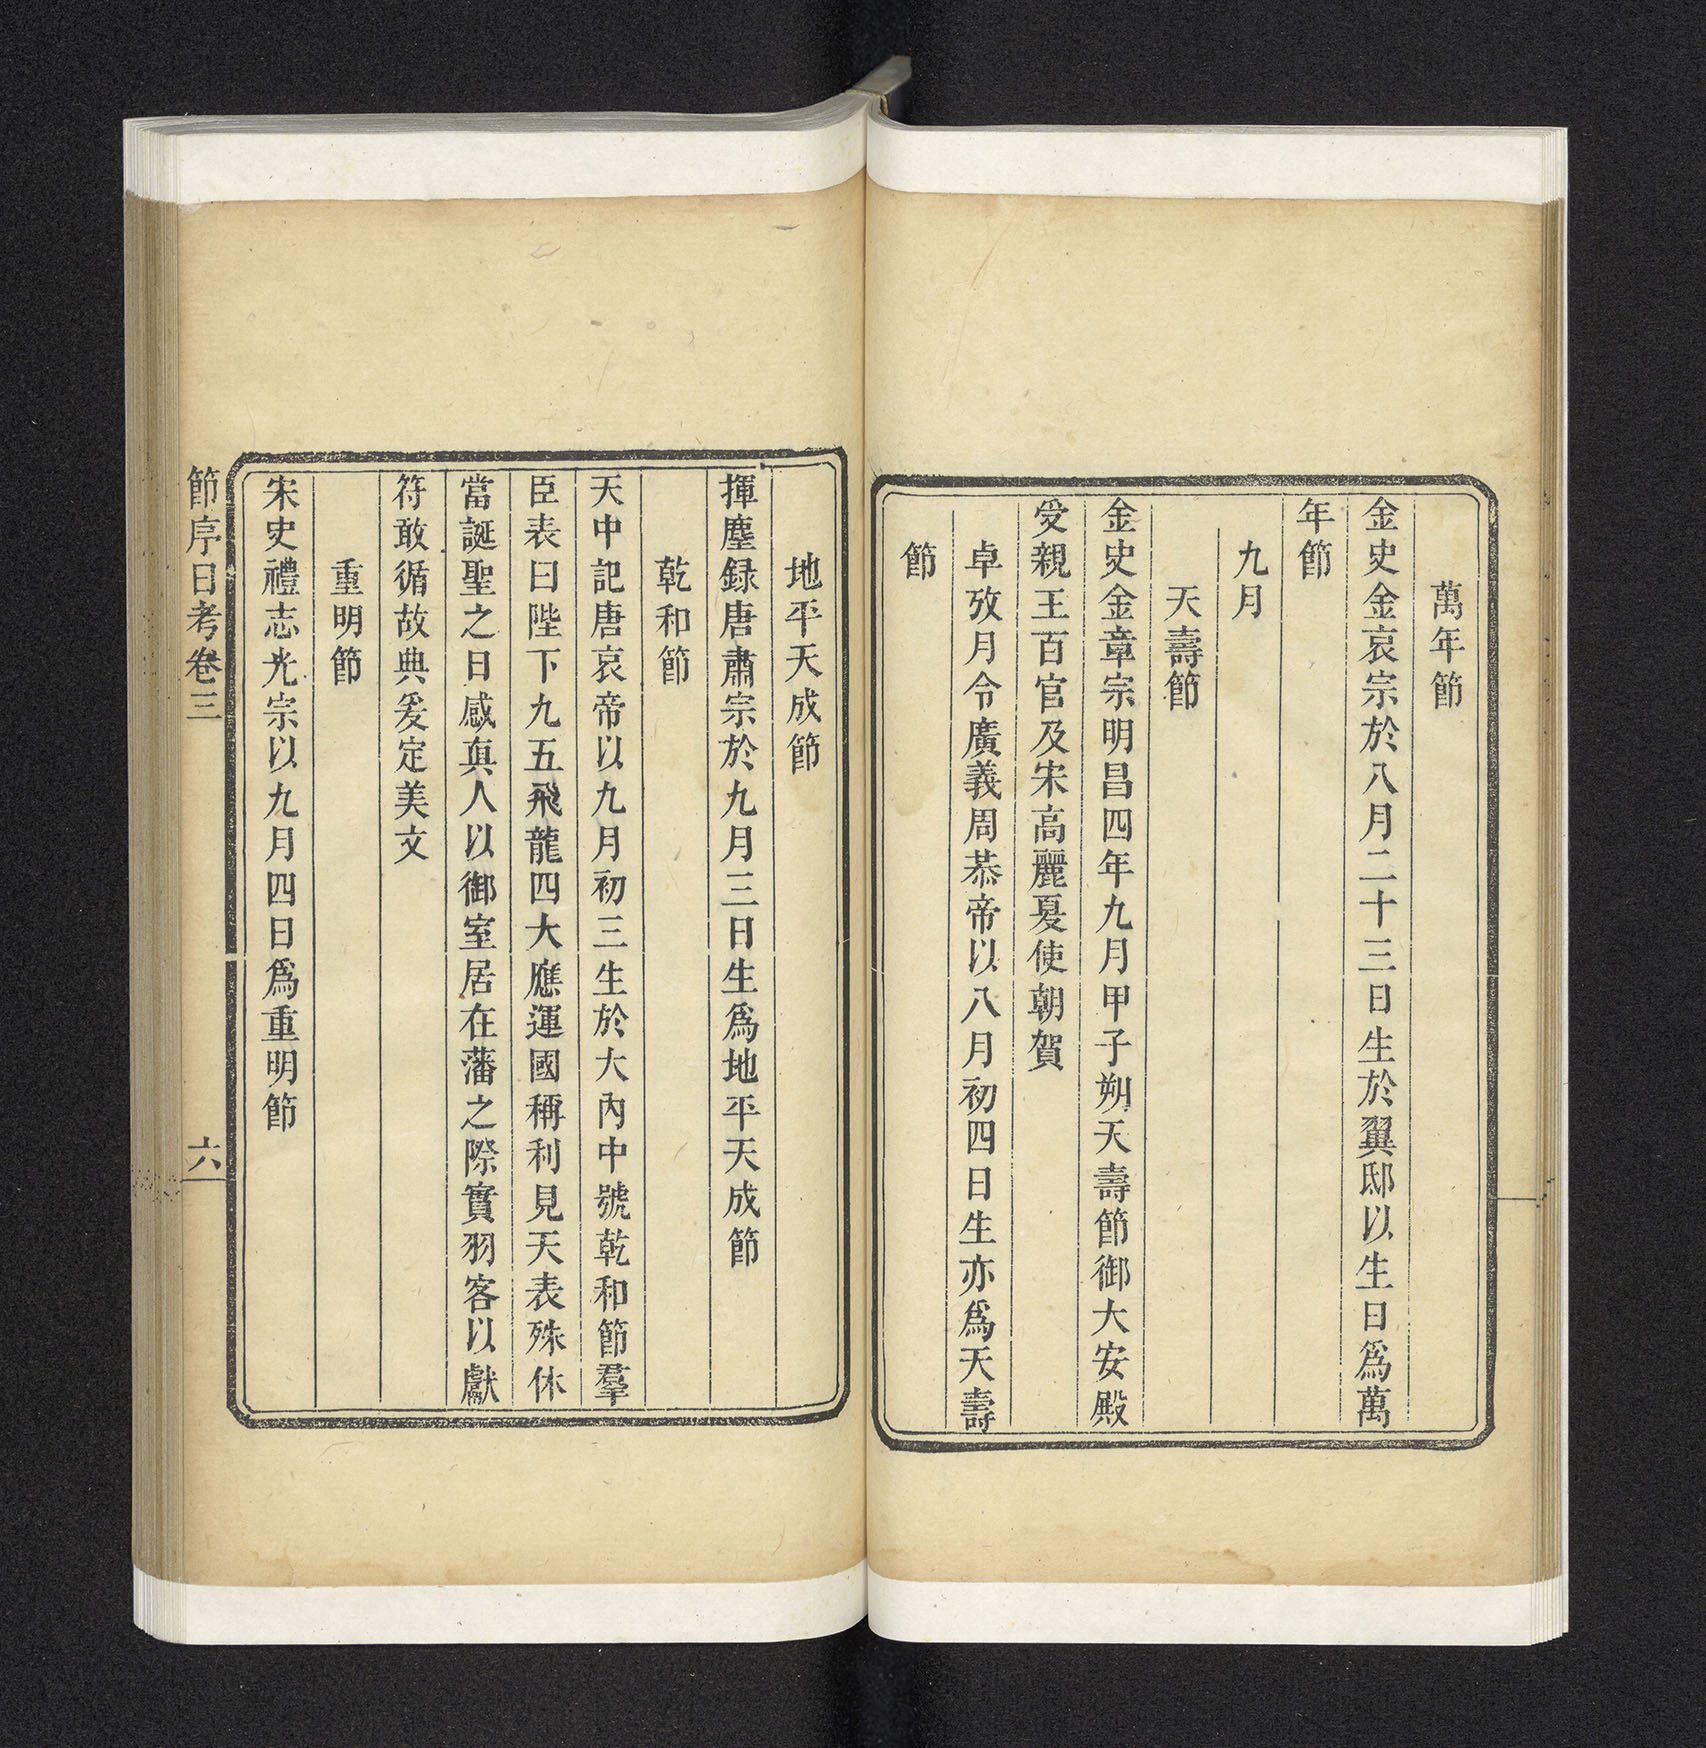 萬年節
金史金哀宗於八月二十三日生於翼邸以生日爲萬
年節
九月
天壽節
金史金章宗明昌四年九月甲子朔天壽節御大安殿
受親王百官及宋高麗夏使朝賀
卓攷月令廣義周恭帝以八月初四日生亦爲天壽
節
地平天成節
揮塵録唐肅宗於九月三日生爲地平天成節
乾和節
天中記唐哀帝以九月初三生於大內中號乾和節羣
臣表曰陛下九五飛龍四大應運國稱利見天表殊休
當誕聖之日感眞人以御室居在藩之際實羽客以獻
符敢循故典爰定美文
重明節
宋史禮志光宗以九月四日爲重明節
節序日考卷三
六